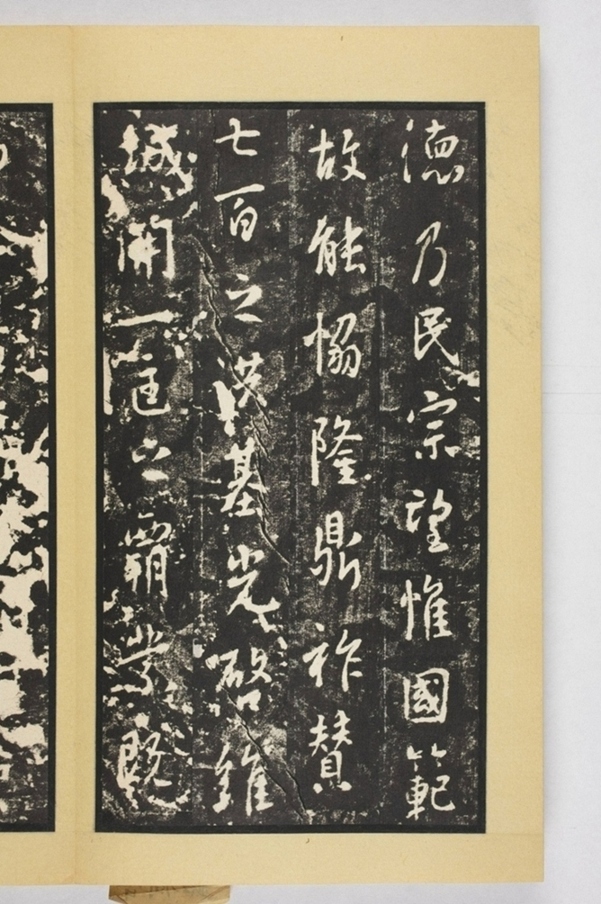 德乃民宗望惟國範
故能恊隆鼎祚賛
七百之洪基光啓維
城開一匡之霸業既